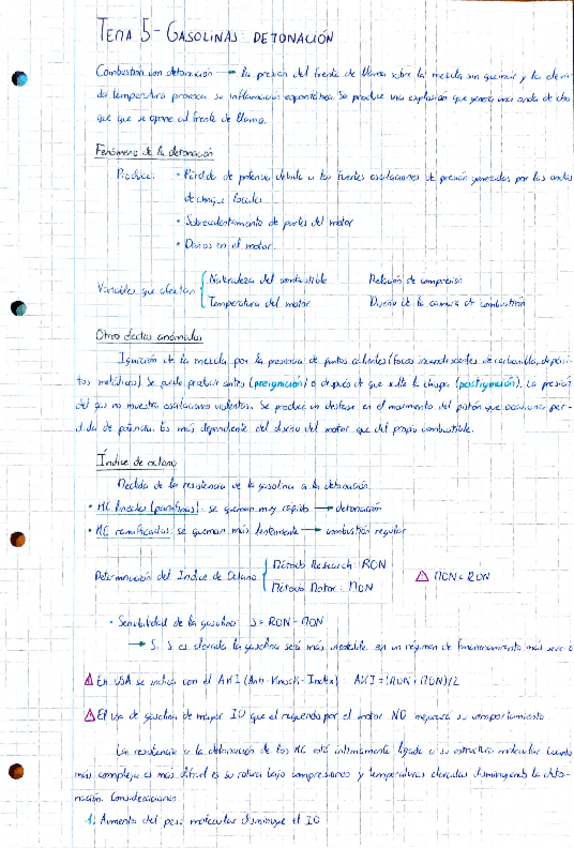 TEMA 5 - GASOLINAS: DETONACIÓN
Combustión con detonación → La presión del frente de llama sobre la mezcla sin quemar y la eleva-
da temperatura provoca su inflamación espontánea. Se produce una explosión que genera una onda de cho-
que que se opone al frente de llama.
Fenómeno de la detonación
Produce: • Pérdida de potencia debida a las fuertes oscilaciones de presión generadas por las ondas
de choque locales
• Sobrecalentamiento de partes del motor
• Daños en el motor
Variables que afectan { Naturaleza del combustible Relación de compresión
Temperatura del motor Diseño de la cámara de combustión
Otros efectos anómalos
Ignición de la mezcla por la presencia de puntos calientes (focos incandescentes de carbonilla, depósi-
tos metálicos). Se puede producir antes (preignición) o después de que salte la chispa (postignición). La presión
del gas no muestra oscilaciones violentas. Se produce un desfase en el movimiento del pistón que ocasiona pér-
dida de potencia. Es más dependiente del diseño del motor que del propio combustible.
Índice de octano
Medida de la resistencia de la gasolina a la detonación.
• HC lineales (parafinas): se queman muy rápido → detonación
• HC ramificados: se queman más lentamente → combustión regular
Determinación del Índice de Octano { Método Research: RON
Método Motor: MON
⚠ MON < RON
• Sensibilidad de la gasolina: S = RON - MON
→ Si S es elevada la gasolina será más inestable en un régimen de funcionamiento más severo
⚠ En USA se indica con el AKI (Anti-Knock-Index) AKI = (RON + MON)/2
⚠ El uso de gasolina de mayor IO que el requerido por el motor NO mejorará su comportamiento
La resistencia a la detonación de los HC está íntimamente ligada a su estructura molecular. Cuanto
más compleja es más difícil es su rotura bajo compresiones y temperaturas elevadas disminuyendo la deto-
nación. Consideraciones:
1: Aumento del peso molecular disminuye el IO